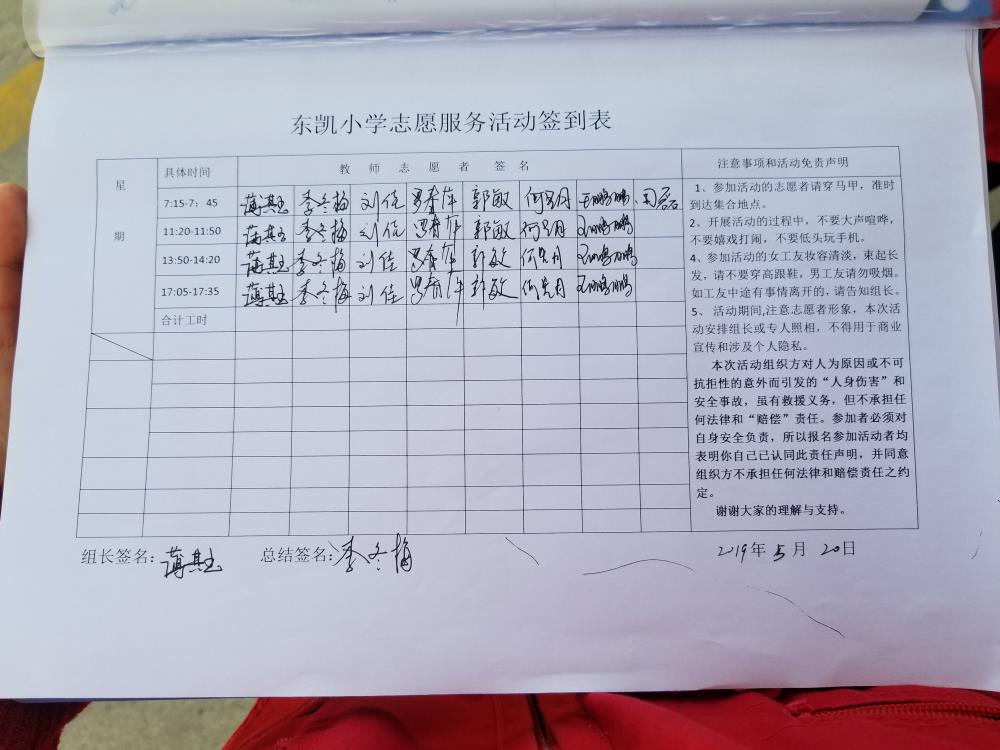 东凯小学志愿服务活动签到表
星期 具体时间 教师志愿者 签名 注意事项和活动免责声明
7:15-7：45 李冬梅 刘佳 罗春萍 郭敏
11:20-11:50 李冬梅 刘佳 罗春萍 郭敏
13:50-14:20 李冬梅 刘佳 罗春萍 郭敏
17:05-17:35 李冬梅 刘佳 罗春萍 郭敏
合计工时
1、参加活动的志愿者请穿马甲，准时
到达集合地点。
2、开展活动的过程中，不要大声喧哗，
不要嬉戏打闹，不要低头玩手机。
4、参加活动的女工友妆容清淡，束起长
发，请不要穿高跟鞋，男工友请勿吸烟。
如工友中途有事情离开的，请告知组长。
5、 活动期间,注意志愿者形象，本次活
动安排组长或专人照相，不得用于商业
宣传和涉及个人隐私。
本次活动组织方对人为原因或不可
抗拒性的意外而引发的“人身伤害”和
安全事故，虽有救援义务，但不承担任
何法律和“赔偿”责任。参加者必须对
自身安全负责，所以报名参加活动者均
表明你自己已认同此责任声明，并同意
组织方不承担任何法律和赔偿责任之约
定。
谢谢大家的理解与支持。
组长签名: 总结签名: 李冬梅 2019年5月20日